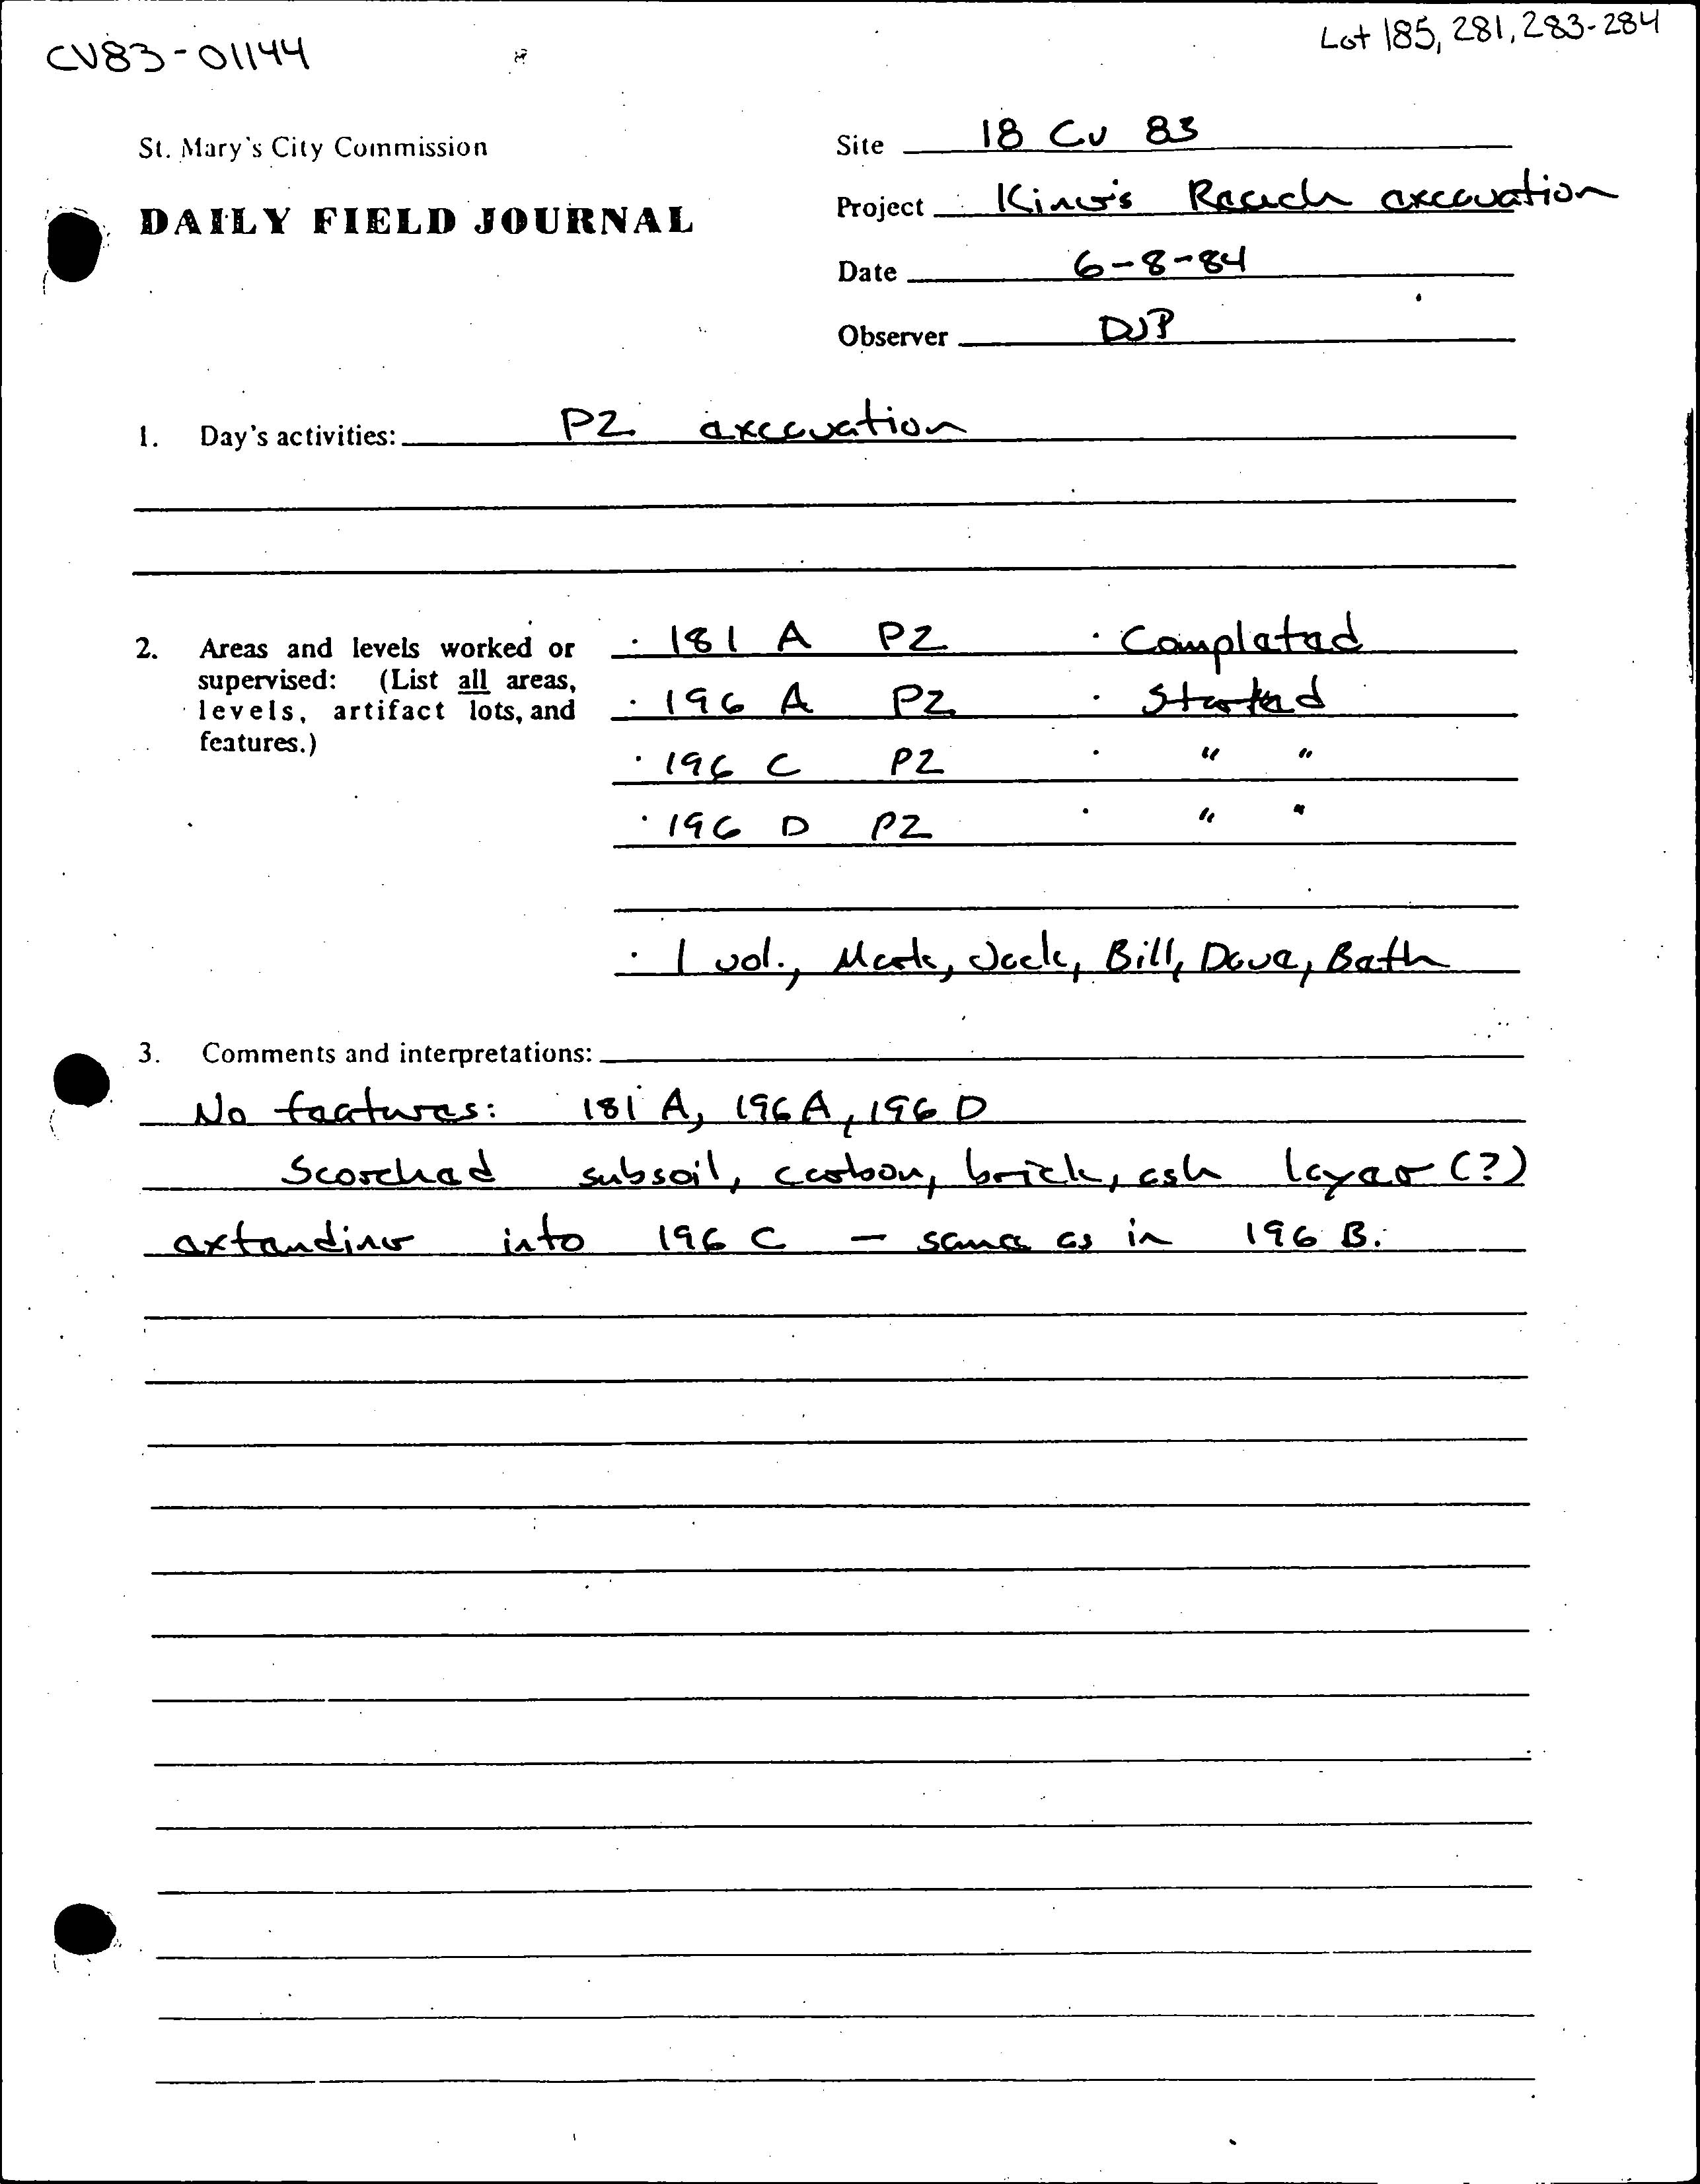 CV83-01144
Lot 185, 281, 283-284
St. Mary's City Commission
Site 18 CV 83
DAILY FIELD JOURNAL
Project King's Reach excavation
Date 6-8-84
Observer DJP
1. Day's activities: PZ excavation
2. Areas and levels worked or supervised: (List all areas, levels, artifact lots, and features.)
· 181 A PZ · Completed
· 196 A PZ · Started
· 196 C PZ · " "
· 196 D PZ · " "
· 1 vol., Mark, Jack, Bill, Dave, Beth
3. Comments and interpretations:
No features: 181 A, 196 A, 196 D
Scorched subsoil, carbon, brick, ash layer (?)
extending into 196 C - same as in 196 B.